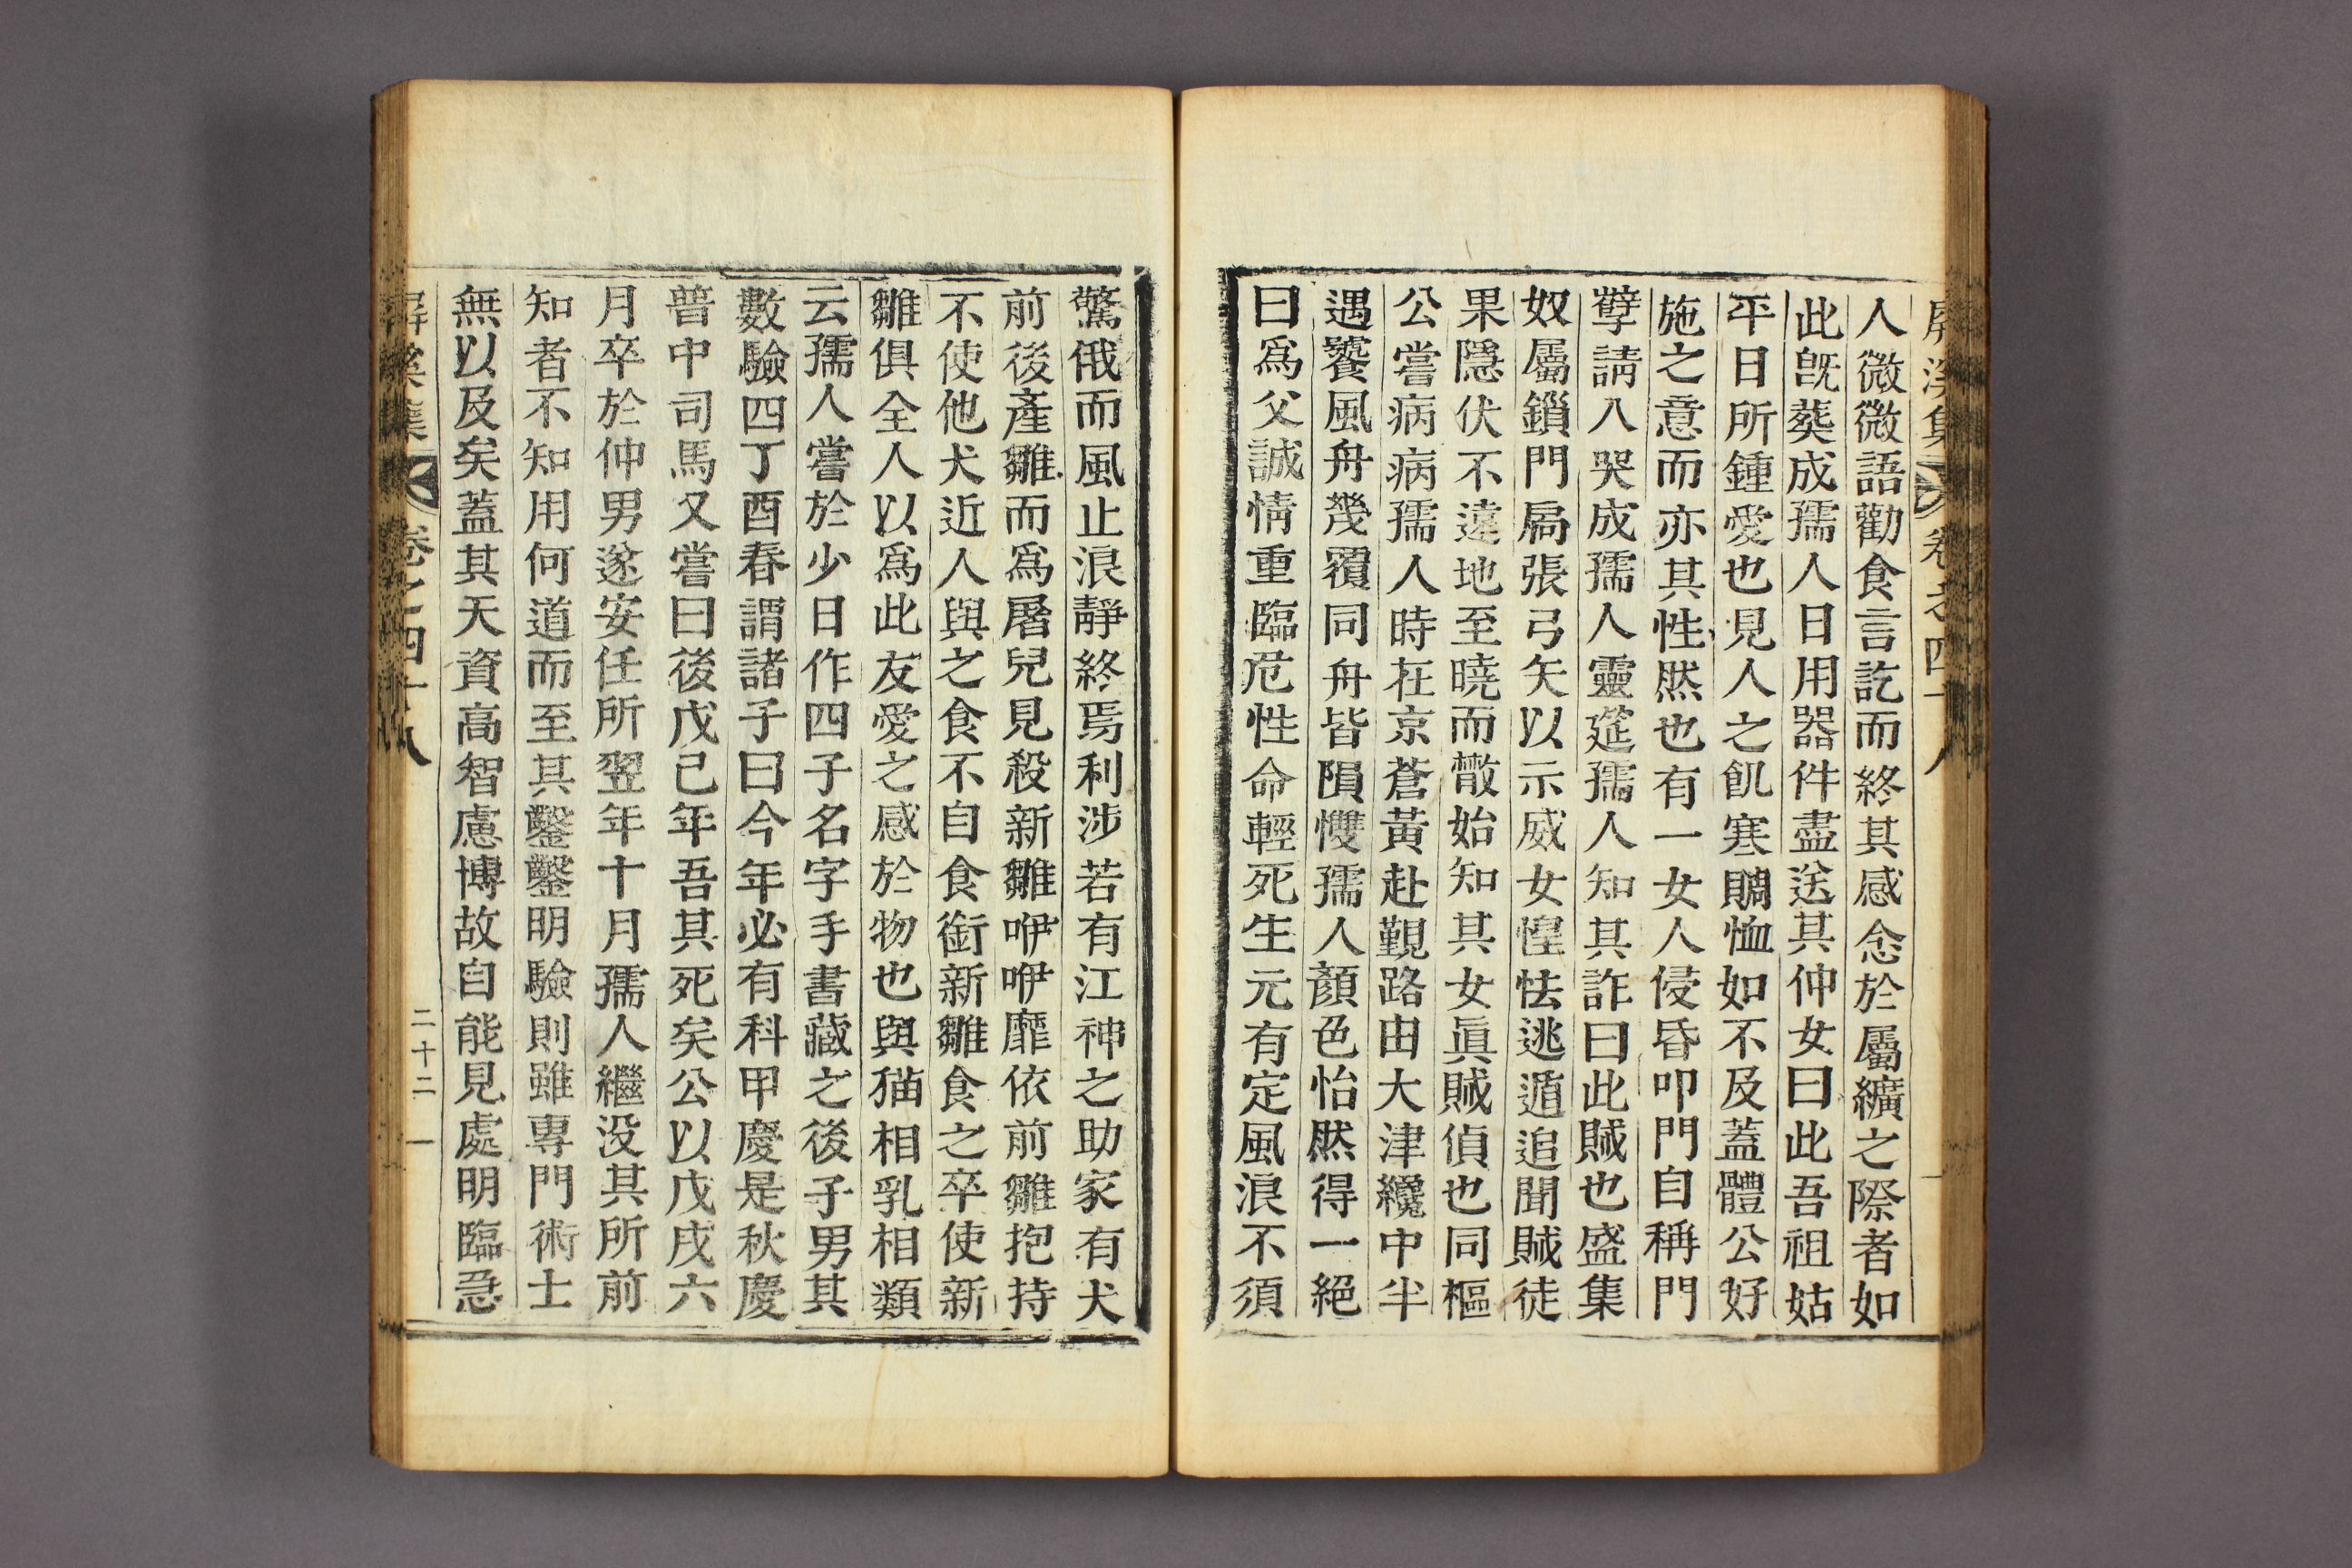 屛溪集 卷之四十八
人微微語勸食言訖而終其感念於屬纊之際者如
此旣葬成孺人日用器件盡送其仲女曰此吾祖姑
平日所鍾愛也見人之飢寒賙恤如不及蓋體公好
施之意而亦其性然也有一女人侵昏叩門自稱門
孼請入哭成孺人靈筵孺人知其詐曰此賊也盛集
奴屬鎖門扃張弓矢以示威女惶怯逃遁追聞賊徒
果隱伏不遠地至曉而散始知其女眞賊偵也同樞
公嘗病病孺人時在京蒼黃赴覲路由大津纔中半
遇饕風舟幾覆同舟皆隕雙孺人顔色怡然得一絕
曰爲父誠情重臨危性命輕死生元有定風浪不須
驚俄而風止浪靜終焉利涉若有江神之助家有犬
前後產雛而爲屠兒見殺新雛咿咿靡依前雛抱持
不使他犬近人與之食不自食銜新雛食之卒使新
雛俱全人以爲此友愛之感於物也與猫相乳相類
云孺人嘗於少日作四子名字手書藏之後子男其
數驗四丁酉春謂諸子曰今年必有科甲慶是秋慶
普中司馬又嘗曰後戊己年吾其死矣公以戊戌六
月卒於仲男遂安任所翌年十月孺人繼没其所前
知者不知用何道而至其鑿鑿明驗則雖專門術士
無以及矣蓋其天資高智慮博故自能見處明臨急
屛溪集 卷之四十八 二十二